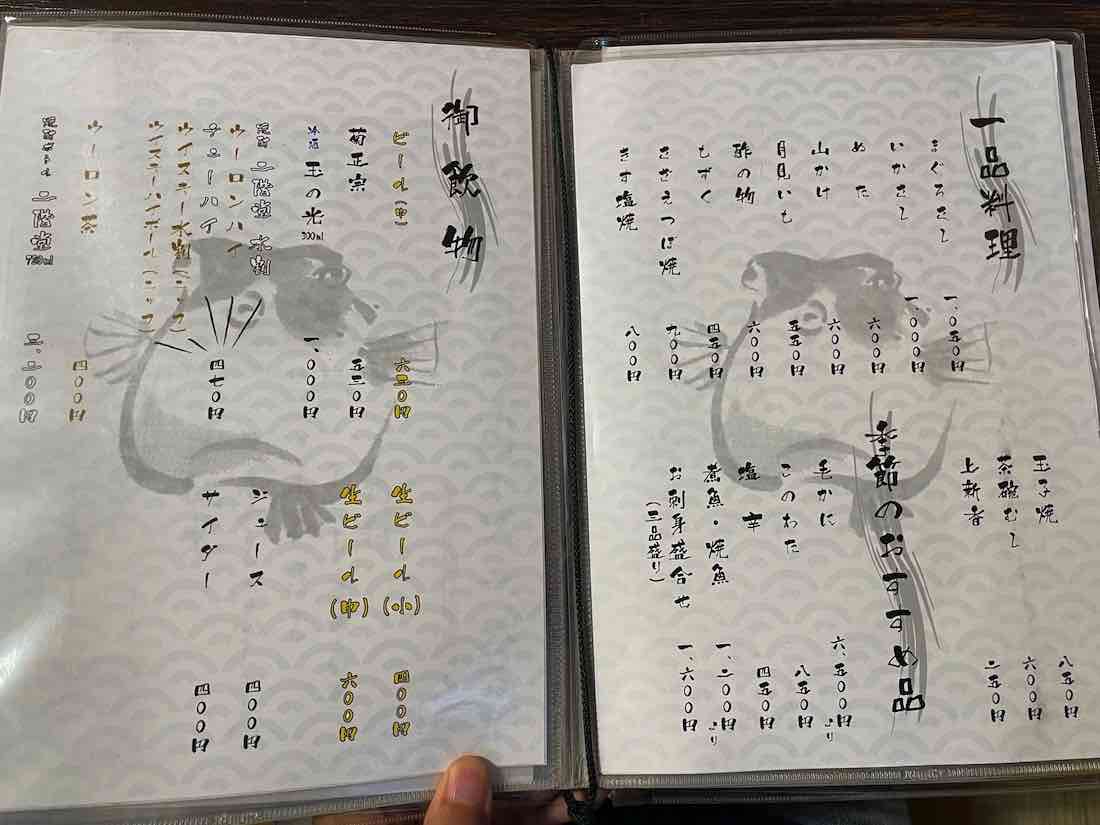 一品料理
まぐろさし 一、〇五〇円
いかさし 一、〇〇〇円
ぬた 六〇〇円
山かけ 六〇〇円
月見いも 五五〇円
酢の物 六〇〇円
もずく 四五〇円
さざえつぼ焼 九〇〇円
きす塩焼 八〇〇円
玉子焼 八五〇円
茶碗むし 六〇〇円
上新香 二五〇円
季節のおすすめ品
毛かに 六、五〇〇円より
このわた 八五〇円
塩辛 四五〇円
煮魚・焼魚 一、二〇〇円より
お刺身盛合せ 一、六〇〇円
（三品盛り）
御飲物
ビール（中） 六三〇円
菊正宗 五三〇円
冷酒 玉の光 300ml 一、〇〇〇円
焼酎 二階堂 水割
ウーロンハイ
チューハイ 四七〇円
ウイスキー水割（ニッカ）
ウイスキーハイボール（ニッカ）
ウーロン茶 四〇〇円
焼酎ボトル 二階堂 720ml 三、二〇〇円
生ビール（小） 四〇〇円
生ビール（中） 六〇〇円
ジュース 四〇〇円
サイダー 四〇〇円